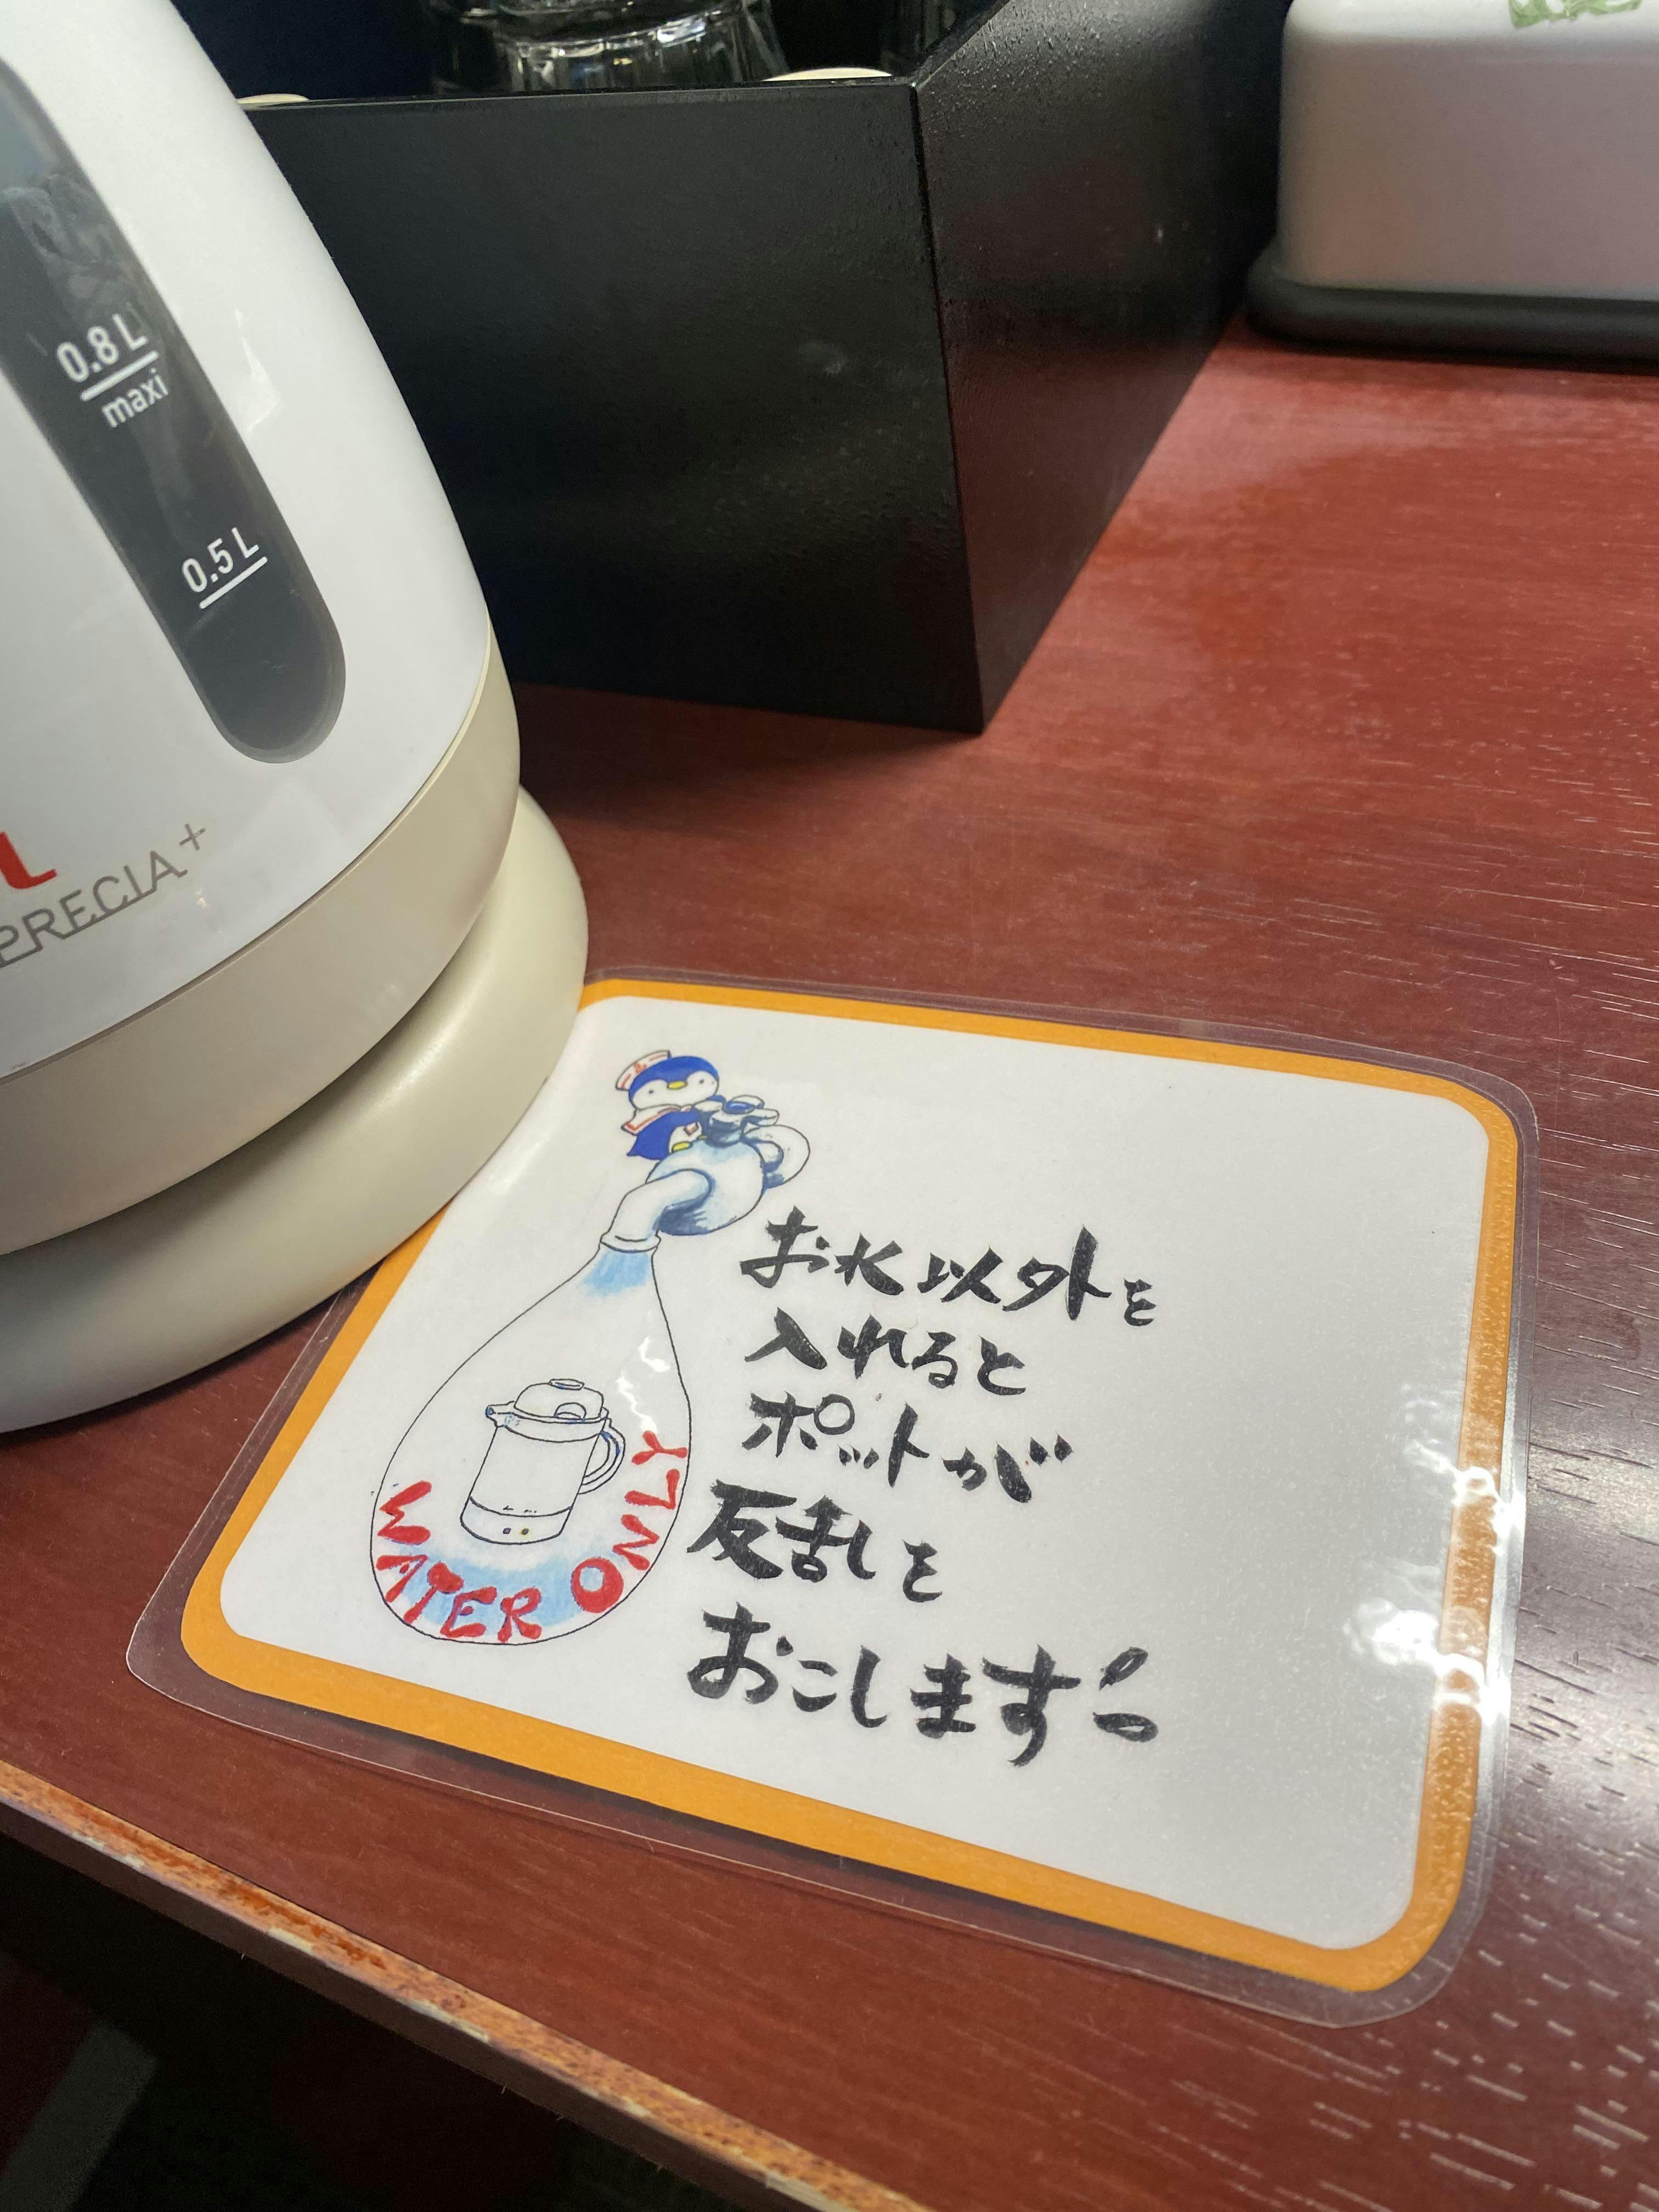 0.8 L
maxi
0.5 L
L
PRECIA+
お水以外を
入れると
ポットが
反乱を
おこします!
WATER ONLY